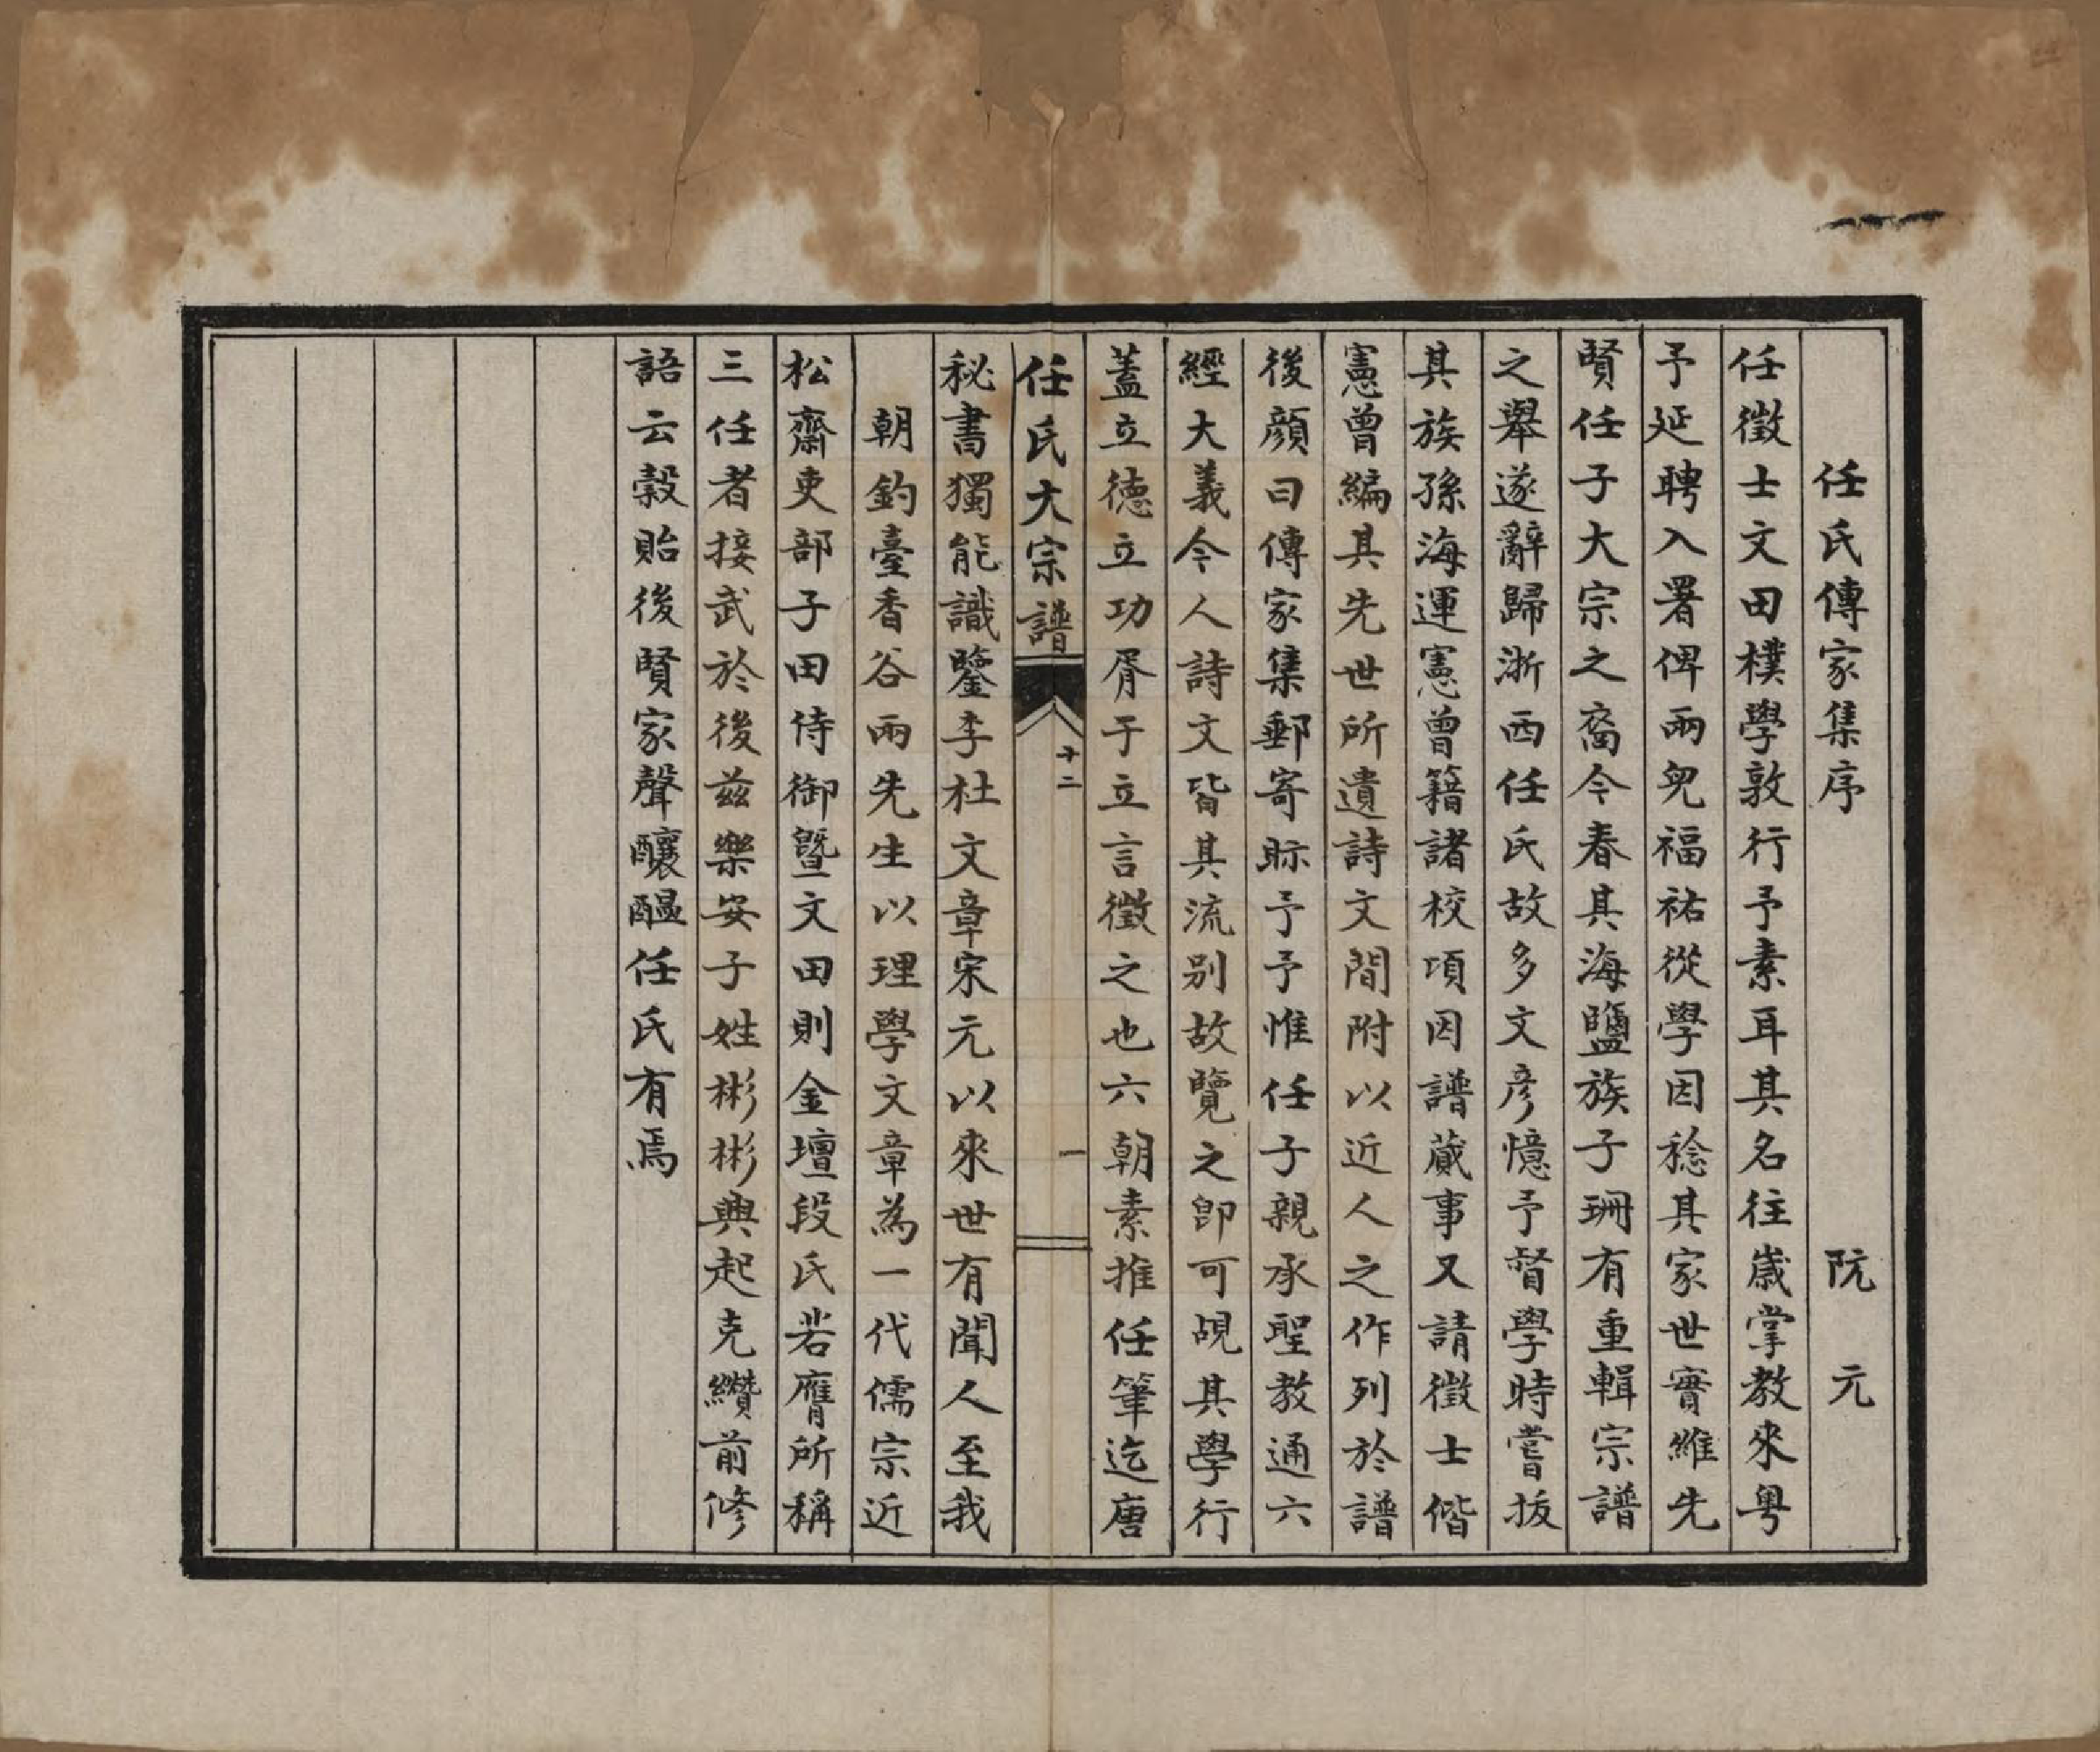 任氏傳家集序　阮　元
任徵士文田樸學敦行予素耳其名往歲掌教來粵
予延聘入署俾兩兒福祜從學因稔其家世實維先
賢任子大宗之裔今春其海鹽族子珊有重輯宗譜
之舉遂辭歸浙西任氏故多文彦憶予督學時嘗拔
其族孫海運憲曾籍諸校項因譜蕆事又請徵士偕
憲曾編其先世所遺詩文間附以近人之作列於譜
後顏曰傳家集郵寄眎予予惟任子親承聖教通六
經大義今人詩文皆其流别故覽之卽可覘其學行
蓋立德立功胥于立言徵之也六朝素推任筆迄唐
任氏大宗譜　十二　一
秘書獨能識鑒李杜文章宋元以來世有聞人至我
朝釣臺香谷兩先生以理學文章為一代儒宗近
松齋吏部子田侍御暨文田則金壇段氏若膺所稱
三任者接武於後兹樂安子姓彬彬興起克纘前修
語云榖貽後賢家聲釀醞任氏有焉